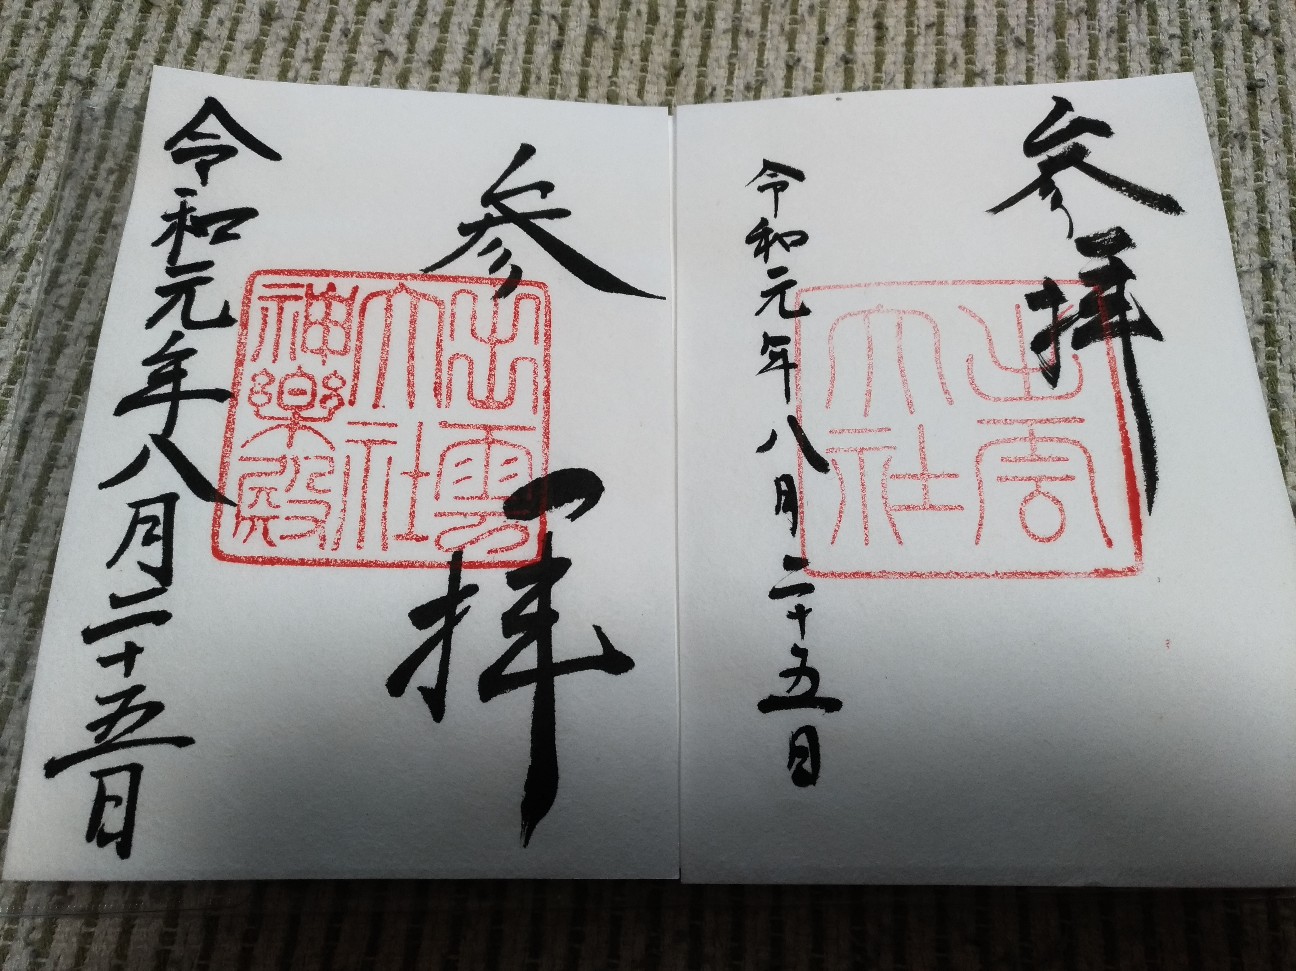 参拝
出雲
大社
令和元年八月二十五日
参拝
出雲
大社
神楽殿
令和元年八月二十五日